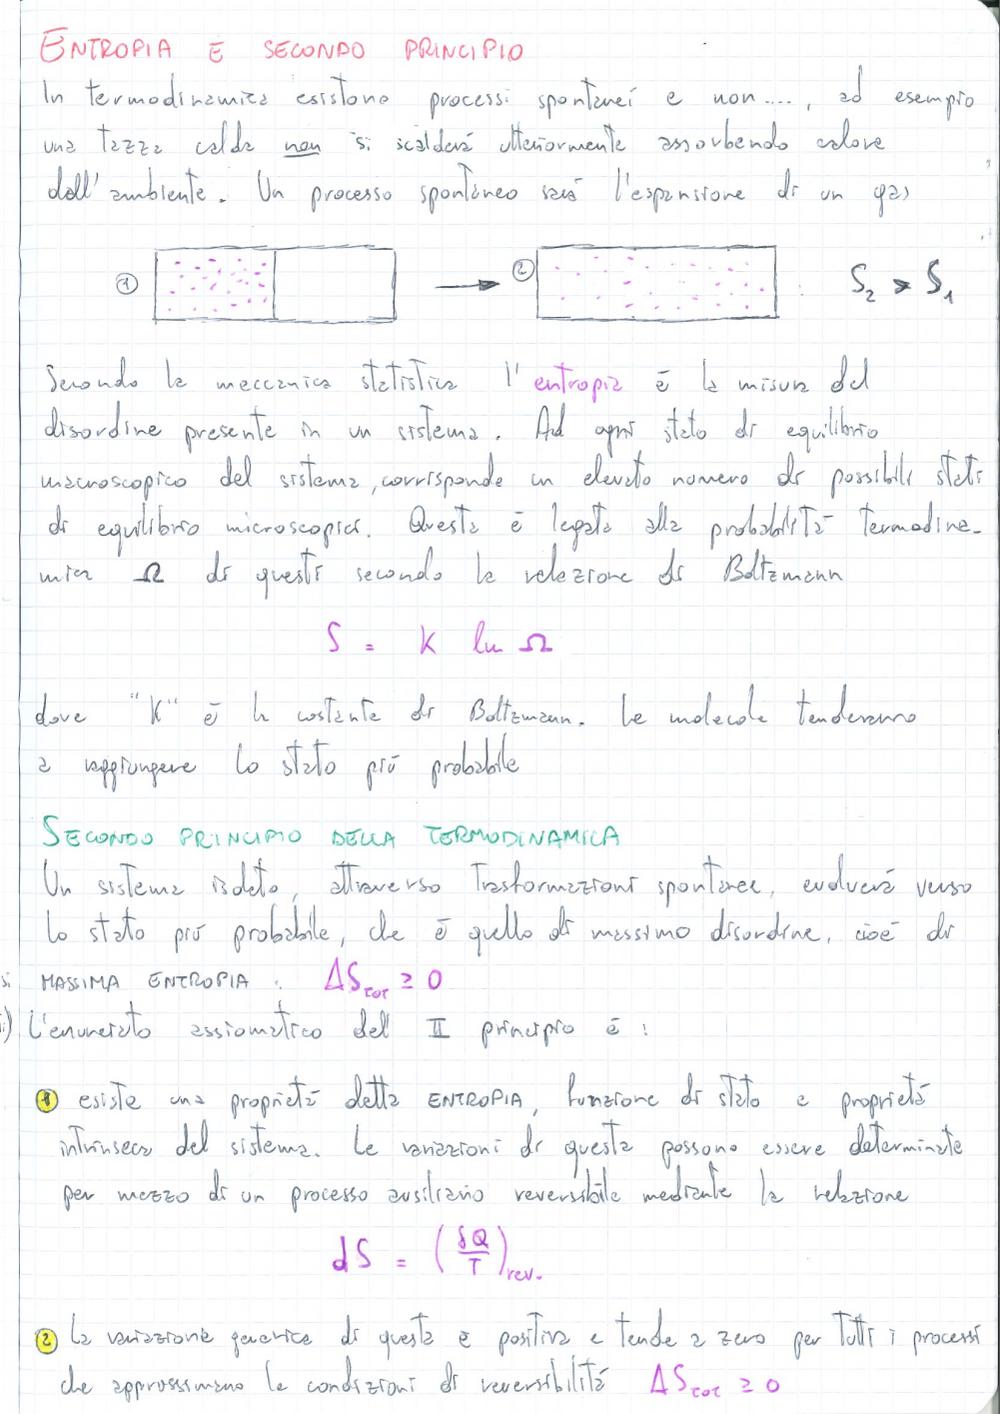 ENTROPIA E SECONDO PRINCIPIO
In termodinamica esistono processi spontanei e non...., ad esempio
una tazza calda non si scalderà ulteriormente assorbendo calore
dall'ambiente. Un processo spontaneo sarà l'espansione di un gas
1 → 2 S₂ > S₁
Secondo la meccanica statistica l'entropia è la misura del
disordine presente in un sistema. Ad ogni stato di equilibrio
macroscopico del sistema, corrisponde un elevato numero di possibili stati
di equilibrio microscopici. Questa è legata alla probabilità termodina-
mica Ω di questi secondo la relazione di Boltzmann
S = K ln Ω
dove "K" è la costante di Boltzmann. Le molecole tenderanno
a raggiungere lo stato più probabile
SECONDO PRINCIPIO DELLA TERMODINAMICA
Un sistema isolato, attraverso trasformazioni spontanee, evolverà verso
lo stato più probabile, che è quello di massimo disordine, cioè di
MASSIMA ENTROPIA : ΔS_TOT ≥ 0
L'enunciato assiomatico del II principio è :
1 esiste una proprietà detta ENTROPIA, funzione di stato e proprietà
intrinseca del sistema. Le variazioni di questa possono essere determinate
per mezzo di un processo ausiliario reversibile mediante la relazione
dS = (δQ/T)rev.
2 La variazione generica di questa è positiva e tende a zero per tutti i processi
che approssimano le condizioni di reversibilità ΔS_TOT ≥ 0